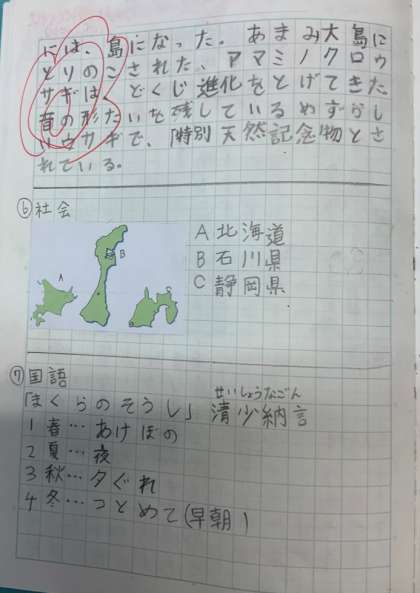 には、島になった。あまみ大島に
とりのこされた、アマミノクロウ
サギは、どくじ進化をとげてきた
昔の形たいを残しているめずらし
いウサギで、「特別天然記念物とさ
れている。
⑥社会
A
B
A北海道
B石川県
C静岡県
⑦国語
せいしょうなごん
「まくらのそうし」清少納言
1春…あけぼの
2夏…夜
3秋…夕ぐれ
4冬…つとめて(早朝)